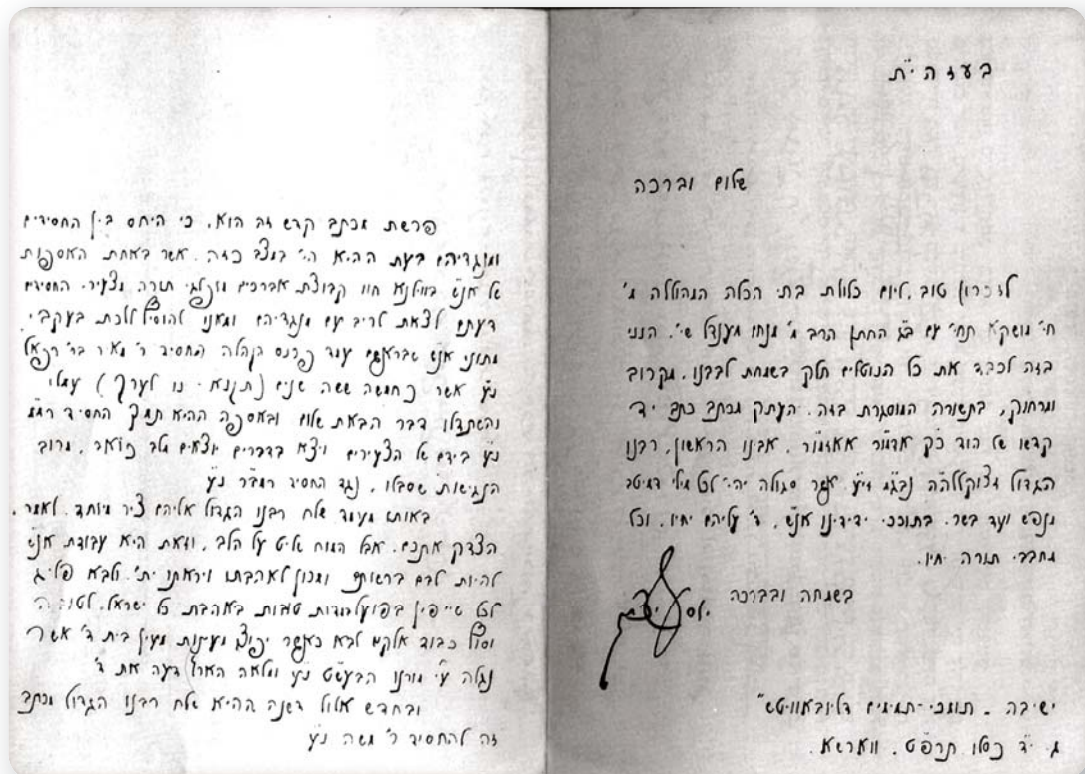 בעזהי״ת
שלום וברכה
לזכרון טוב, ליום כלולת בתי הכלה המהוללה מ׳
חי׳ מושקא תחי׳ עם ב״ג החתן הרב מ׳ מנחם מענדל שי׳. הנני
בזה לכבד את כל הנוטלים חלק בשמחת לבבנו, מקרוב
ומרחוק, בתשורה המוסגרת בזה. העתק מכתב כתב יד
קדשו של הוד כ״ק אדמו״ר אאזמו״ר. אבינו הראשון, רבנו
הגדול זצוקללה״ה נבג״מ זי״ע. אשר סגולה יהי׳ לכל מילי דמיטב
מנפש ועד בשר. בתוככי ידידינו אנ״ש, ד׳ עליהם יחיו, וכל
מחבבי תורה יחיו.
בשמחה וברכה
ישיבה - תומכי-תמימים דליובאוויטש״
ג. י״ד כסלו תרפ״ט. ווארשא.
פרשת מכתב קדש זה הוא, כי היחס בין החסידים
ומנגדיהם בעת ההיא הי׳ במצב כזה, אשר באחת האספות
של אנ״ש בווילנא חוו קבוצת אברכים מופלגי תורה מצעירי החסידים
דעתם לצאת לריב עם מנגדיהם ומאנו להוסיף ללכת בעקבי
מתוני אנ״ש שבראשם עמד פרנס הקהלה החסיד ר׳ מאיר בר׳ רפאל
נ״ע אשר כחמשה ששה שנים (תקנא - נו לערך) עמלו
והשתדלו דבר הבאת שלום ובאספה ההיא תמך החסיד
נ״ע בידם של הצעירים ויצא בדברים יוצאים מלב כואב, מרוב
הנגישות שסבלו, נגד החסיד נ״ע
באותו מעמד שלח רבנו הגדול אליהם ציר מיוחד, לאמר,
הצדק אתכם, אבל המוח שליט על הלב, וזאת היא עבודת אנ״ש
להיות לבם ברשותם ומכון לאהבתו ויראתו ית׳. ולבא פליג
לכל שייפין בפועל במדות טובות באהבת כל ישראל, לטובה
וסוף כבוד אלקים לבא כאשר יפוצו מעינות מעין בית ד׳ אשר
נגלה ע״י מורנו הבעש״ט נ״ע ומלאה הארץ דעה את ד׳
ובחדש אלול דשנה ההיא שלח רבנו הגדול מכתב
זה להחסיד ר׳ משה נ״ע